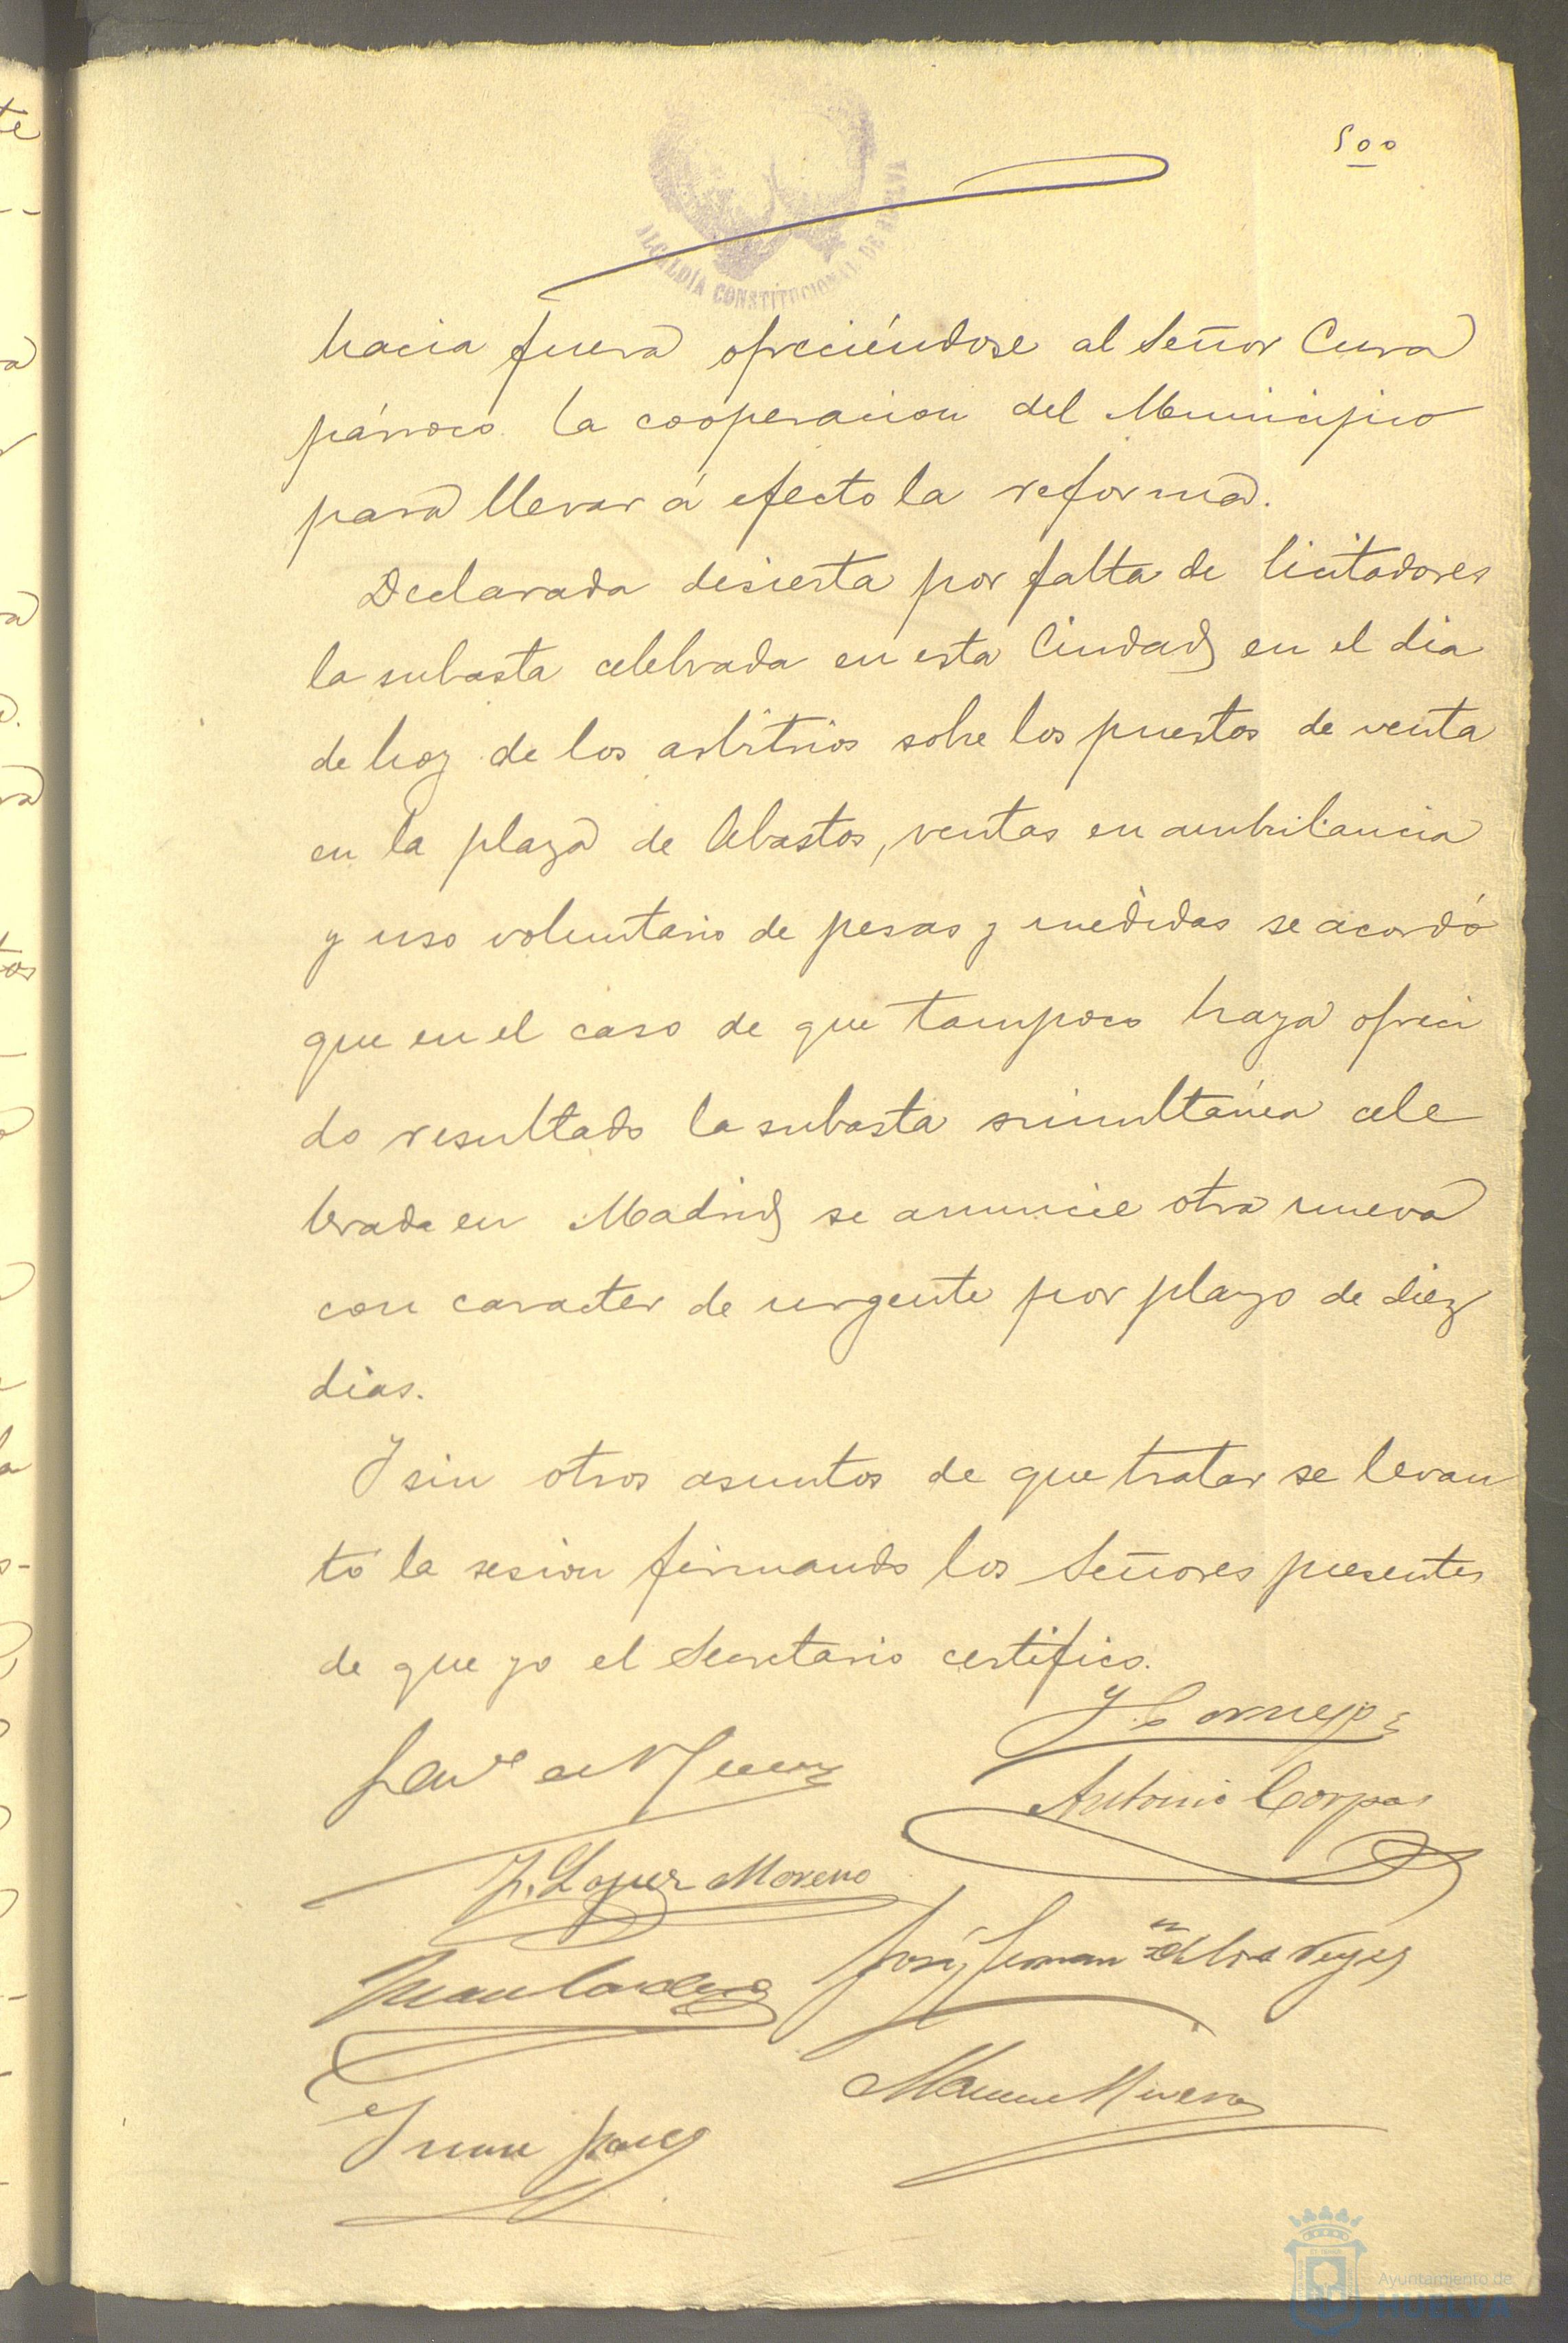 500
ALCALDÍA CONSTITUCIONAL DE HUELVA
hacia fuera ofreciéndose al Señor Cura
párroco la cooperacion del Municipio
para llevar á efecto la reforma.
Declarada desierta por falta de licitadores
la subasta celebrada en esta Ciudad en el dia
de hoy de los arbitrios sobre los puestos de venta
en la plaza de Abastos, ventas en ambulancia
y uso voluntario de pesas y medidas se acordó
que en el caso de que tampoco haya ofreci
do resultado la subasta simultánea cele
brada en Madrid se anuncie otra nueva
con caracter de urgente por plazo de diez
dias.
Y sin otros asuntos de que tratar se levan
tó la sesion firmando los Señores presentes
de que yo el Secretario certifico.
Y Cornejo
Antonio Corpas
J. Lopez Moreno
José Fernan de los Reyes
Juan
Manuel Rivera
Juan
Ayuntamiento de
HUELVA